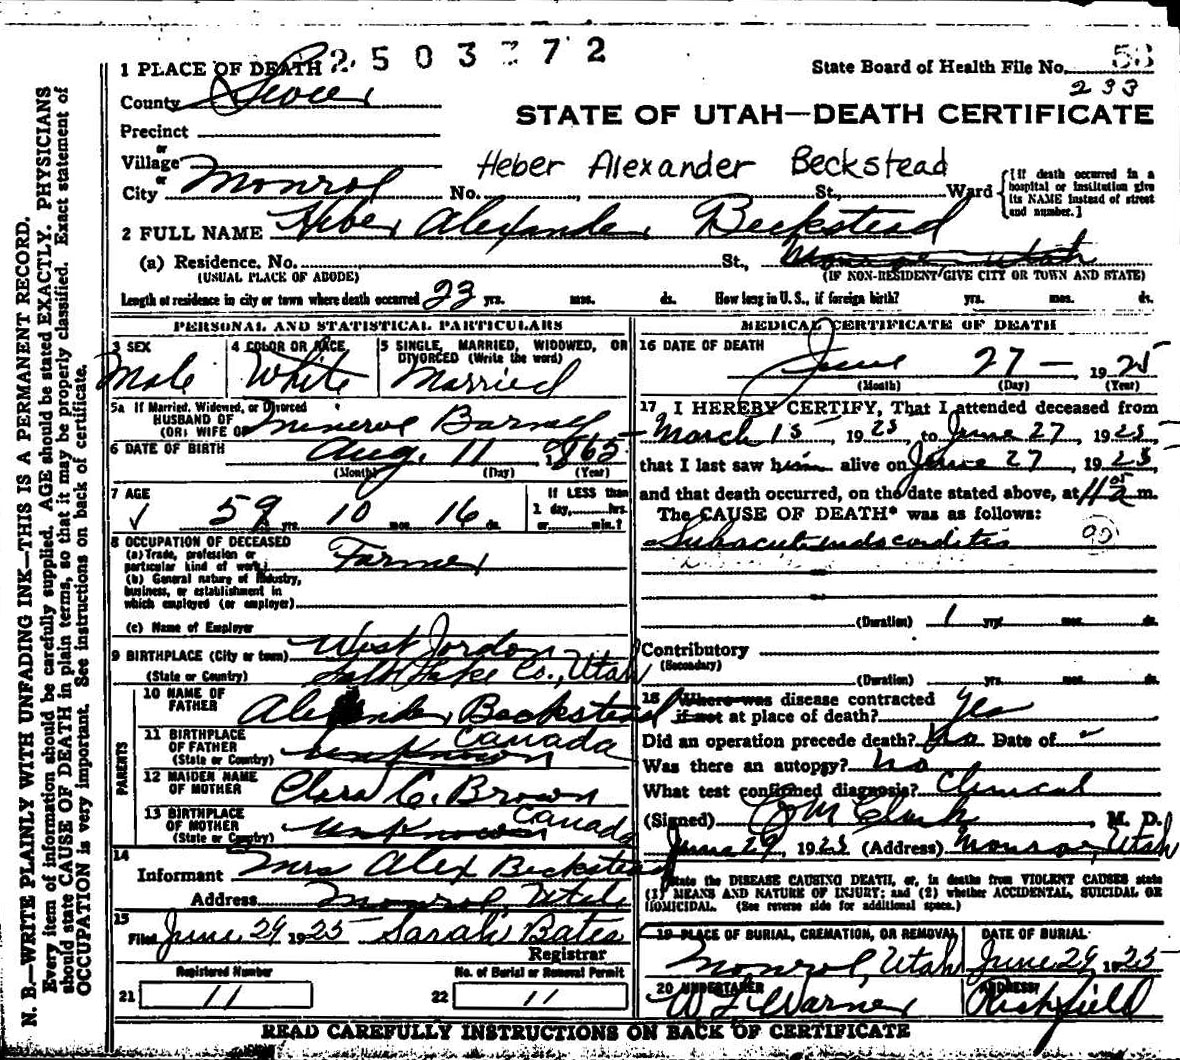 2503372
1 PLACE OF DEATH
State Board of Health File No. 53
233
County Sevier
STATE OF UTAH—DEATH CERTIFICATE
Precinct
or
Village
Heber Alexander Beckstead
or
City Monroe No. St., Ward
[If death occurred in a hospital or institution give its NAME instead of street and number.]
2 FULL NAME Heber Alexander Beckstead
(a) Residence. No. St., Monroe Utah
(USUAL PLACE OF ABODE) (IF NON-RESIDENT GIVE CITY OR TOWN AND STATE)
Length of residence in city or town where death occurred 23 yrs. mos. ds. How long in U.S., if foreign birth? yrs. mos. ds.
PERSONAL AND STATISTICAL PARTICULARS
3 SEX
Male
4 COLOR OR RACE
White
5 SINGLE, MARRIED, WIDOWED, OR DIVORCED (Write the word)
Married
5a If Married, Widowed, or Divorced
HUSBAND OF
(OR) WIFE OF Minerva Barney
6 DATE OF BIRTH Aug. 11 1865
(Month) (Day) (Year)
7 AGE
59 yrs. 10 mos. 16 ds.
If LESS than
1 day, hrs.
or min.?
8 OCCUPATION OF DECEASED
(a) Trade, profession or
particular kind of work Farmer
(b) General nature of industry,
business, or establishment in
which employed (or employer)
(c) Name of Employer
9 BIRTHPLACE (City or town) West Jordan
(State or Country) Salt Lake Co., Utah
PARENTS
10 NAME OF
FATHER Alexander Beckstead
11 BIRTHPLACE
OF FATHER
(State or Country) unknown Canada
12 MAIDEN NAME
OF MOTHER Clara C. Brown
13 BIRTHPLACE
OF MOTHER
(State or Country) unknown Canada
14
Informant Mrs Alex Beckstead
Address Monroe, Utah
15
Filed June 29 1925 Sarah Bates
Registrar
Registered Number No. of Burial or Removal Permit
21 11 22 11
MEDICAL CERTIFICATE OF DEATH
16 DATE OF DEATH
June 27 — 1925
(Month) (Day) (Year)
17 I HEREBY CERTIFY, That I attended deceased from
March 15, 1925, to June 27, 1925,
that I last saw him alive on June 27, 1925,
and that death occurred, on the date stated above, at 11 05 a m.
The CAUSE OF DEATH* was as follows:
Subacute endocarditis 90
(Duration) 1 yrs. mos. ds.
Contributory
(Secondary)
(Duration) yrs. mos. ds.
18 Where was disease contracted
if not at place of death? Yes
Did an operation precede death? No Date of
Was there an autopsy? No
What test confirmed diagnosis? Clinical
(Signed) Clark, M. D.
June 29, 1925 (Address) Monroe, Utah
State the DISEASE CAUSING DEATH, or, in deaths from VIOLENT CAUSES state
(1) MEANS AND NATURE OF INJURY; and (2) whether ACCIDENTAL, SUICIDAL OR
HOMICIDAL. (See reverse side for additional space.)
19 PLACE OF BURIAL, CREMATION, OR REMOVAL
Monroe, Utah
DATE OF BURIAL
June 29 1925
20 UNDERTAKER
W L Warner
ADDRESS
Richfield
READ CAREFULLY INSTRUCTIONS ON BACK OF CERTIFICATE
N. B.—WRITE PLAINLY WITH UNFADING INK—THIS IS A PERMANENT RECORD.
Every item of information should be carefully supplied. AGE should be stated EXACTLY. PHYSICIANS
should state CAUSE OF DEATH in plain terms, so that it may be properly classified. Exact statement of
OCCUPATION is very important. See instructions on back of certificate.